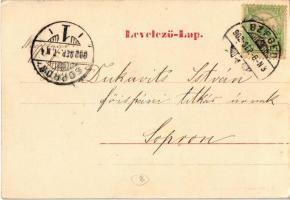 Levelező-Lap.
SOPRON
1
Dukavits István
főispáni titkár úrnak
Sopron